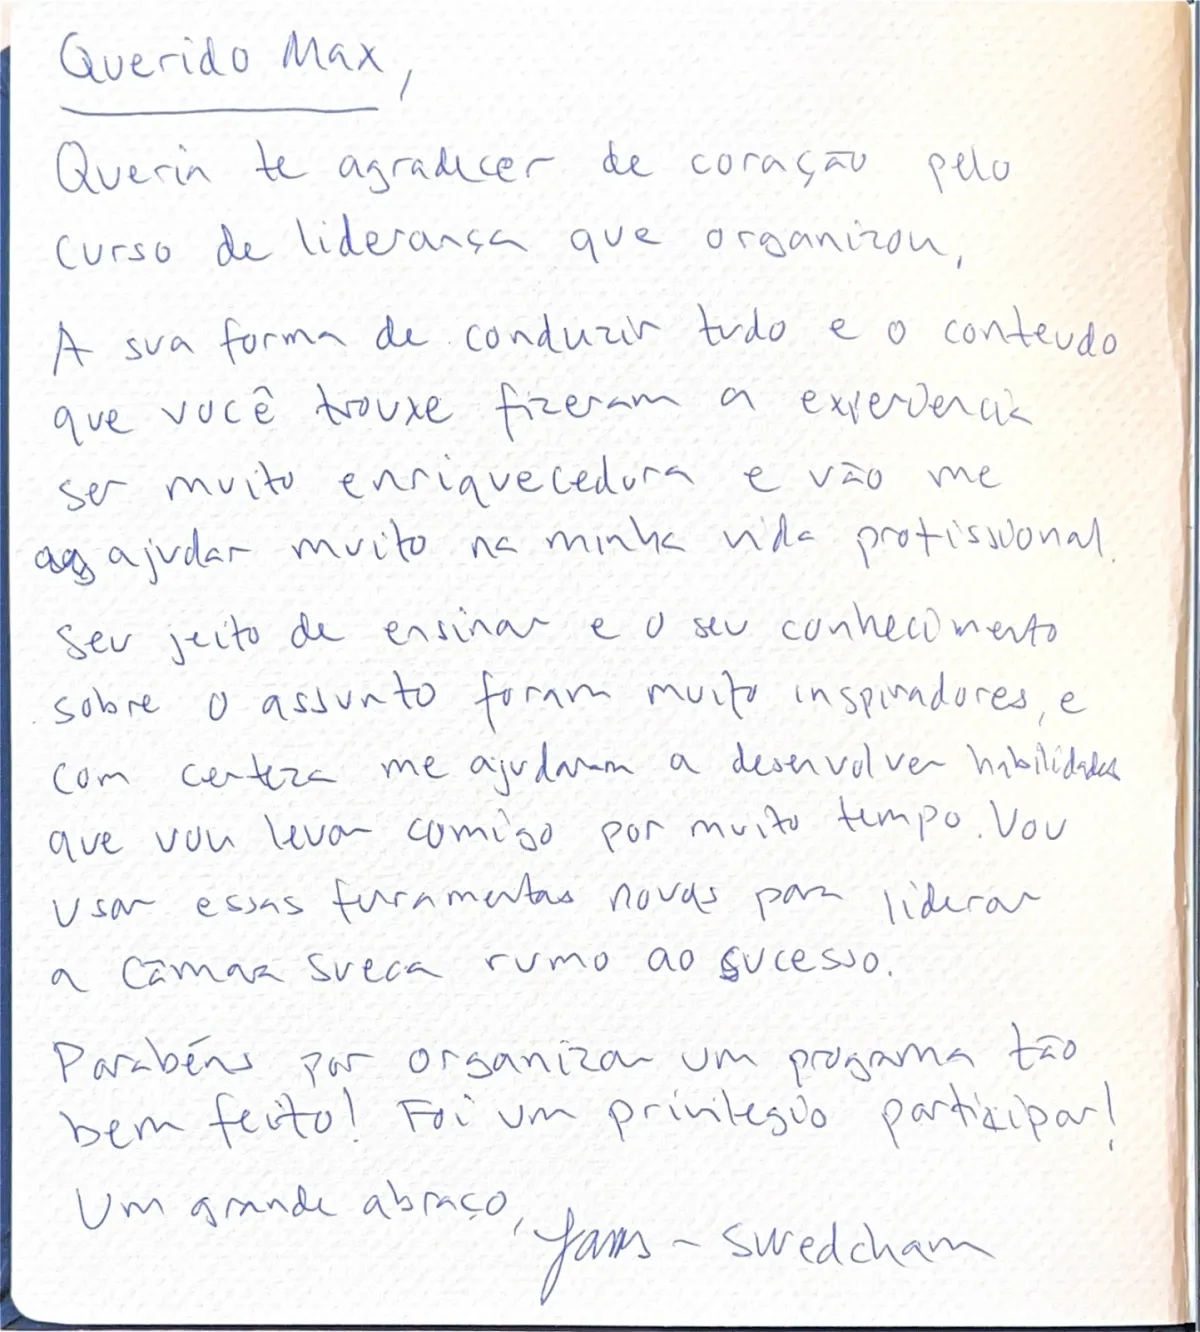 Querido Max,
Queria te agradecer de coração pelo
curso de liderança que organizou,
A sua forma de conduzir tudo e o conteudo
que você trouxe fizeram a experiencia
ser muito enriquecedora e vão me
ajudar muito na minha vida profissional.
Seu jeito de ensinar e o seu conhecimento
sobre o assunto foram muito inspiradores, e
com certeza me ajudaram a desenvolver habilidades
que vou levar comigo por muito tempo. Vou
usar essas ferramentas novas para liderar
a Câmara Sueca rumo ao sucesso.
Parabéns por organizar um programa tão
bem feito! Foi um privilegio participar!
Um grande abraço,
- Swedcham